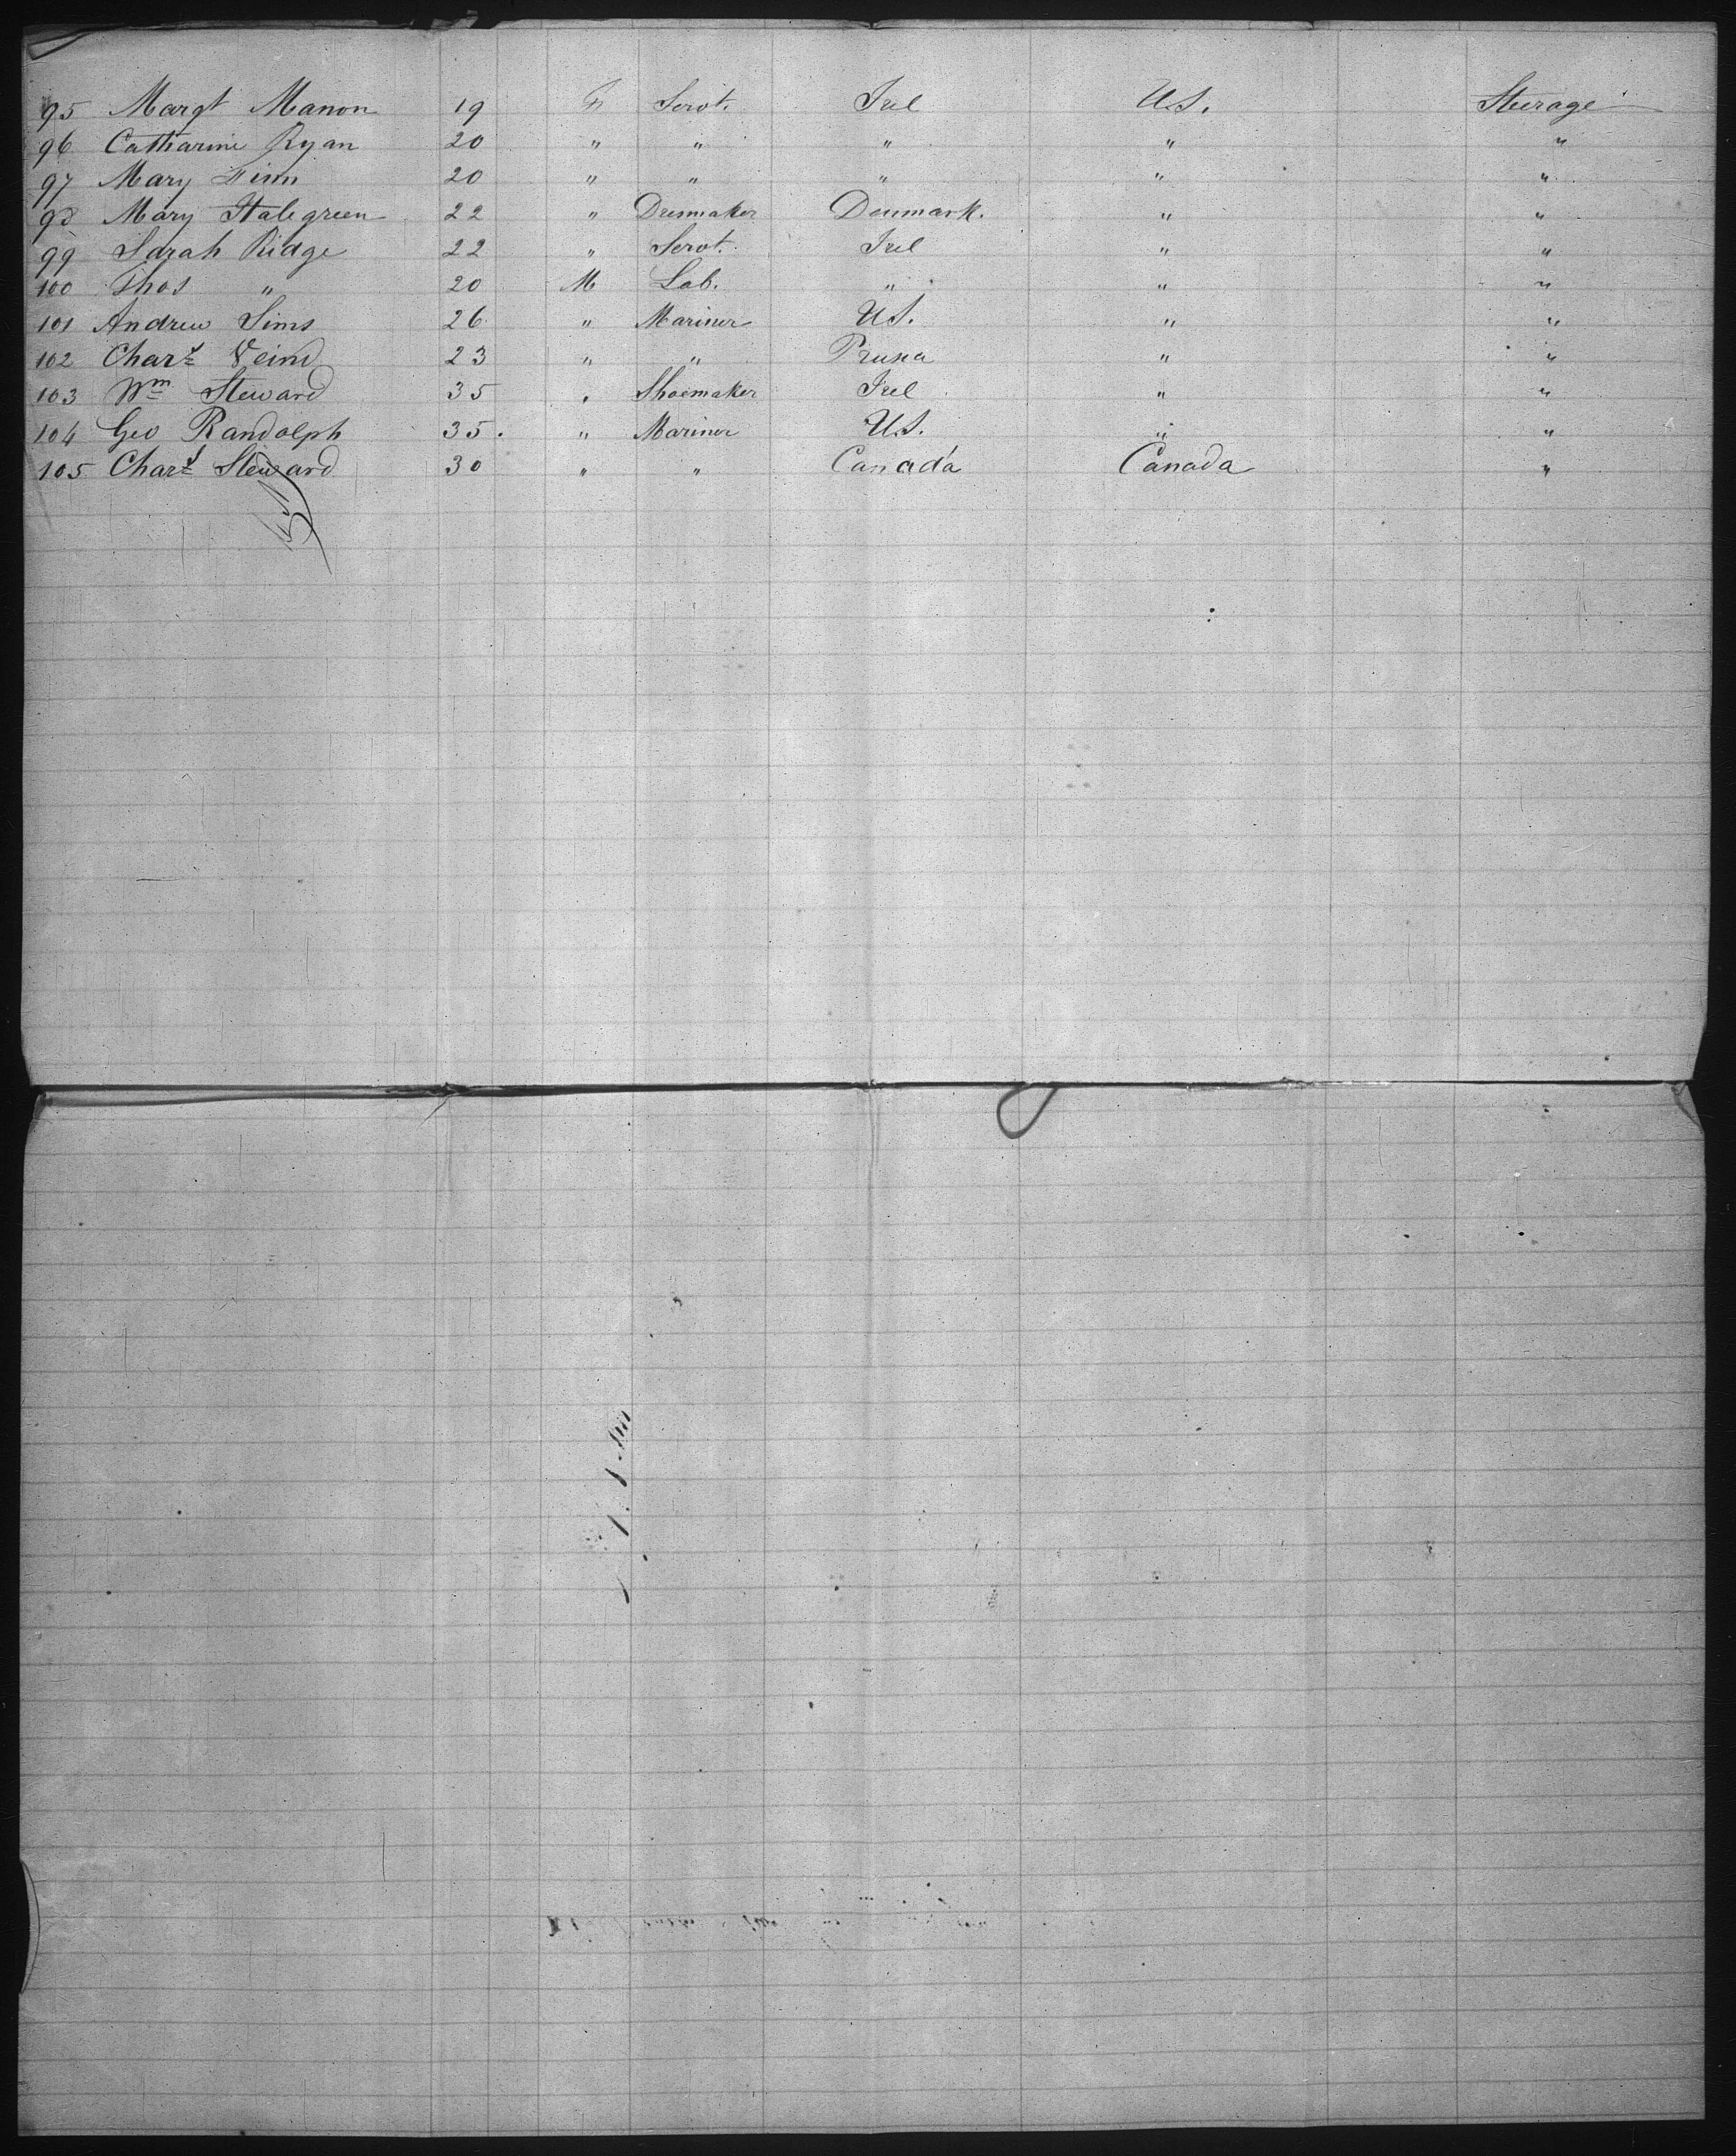 95 Margt Manon 19 F Servt. Irel U.S. Steerage
96 Catharine Ryan 20 " " " " "
97 Mary Finn 20 " " " " "
98 Mary Stalegreen 22 " Dressmaker Denmark. " "
99 Sarah Ridge 22 " Servt. Irel " "
100 Thos " 20 M Lab. " " "
101 Andrew Sims 26 " Mariner U.S. " "
102 Chars 23 " " Prussia " "
103 Wm Steward 35 " Shoemaker Irel " "
104 Geo Randolph 35. " Mariner U.S. " "
105 Chars Steward 30 " " Canada Canada "